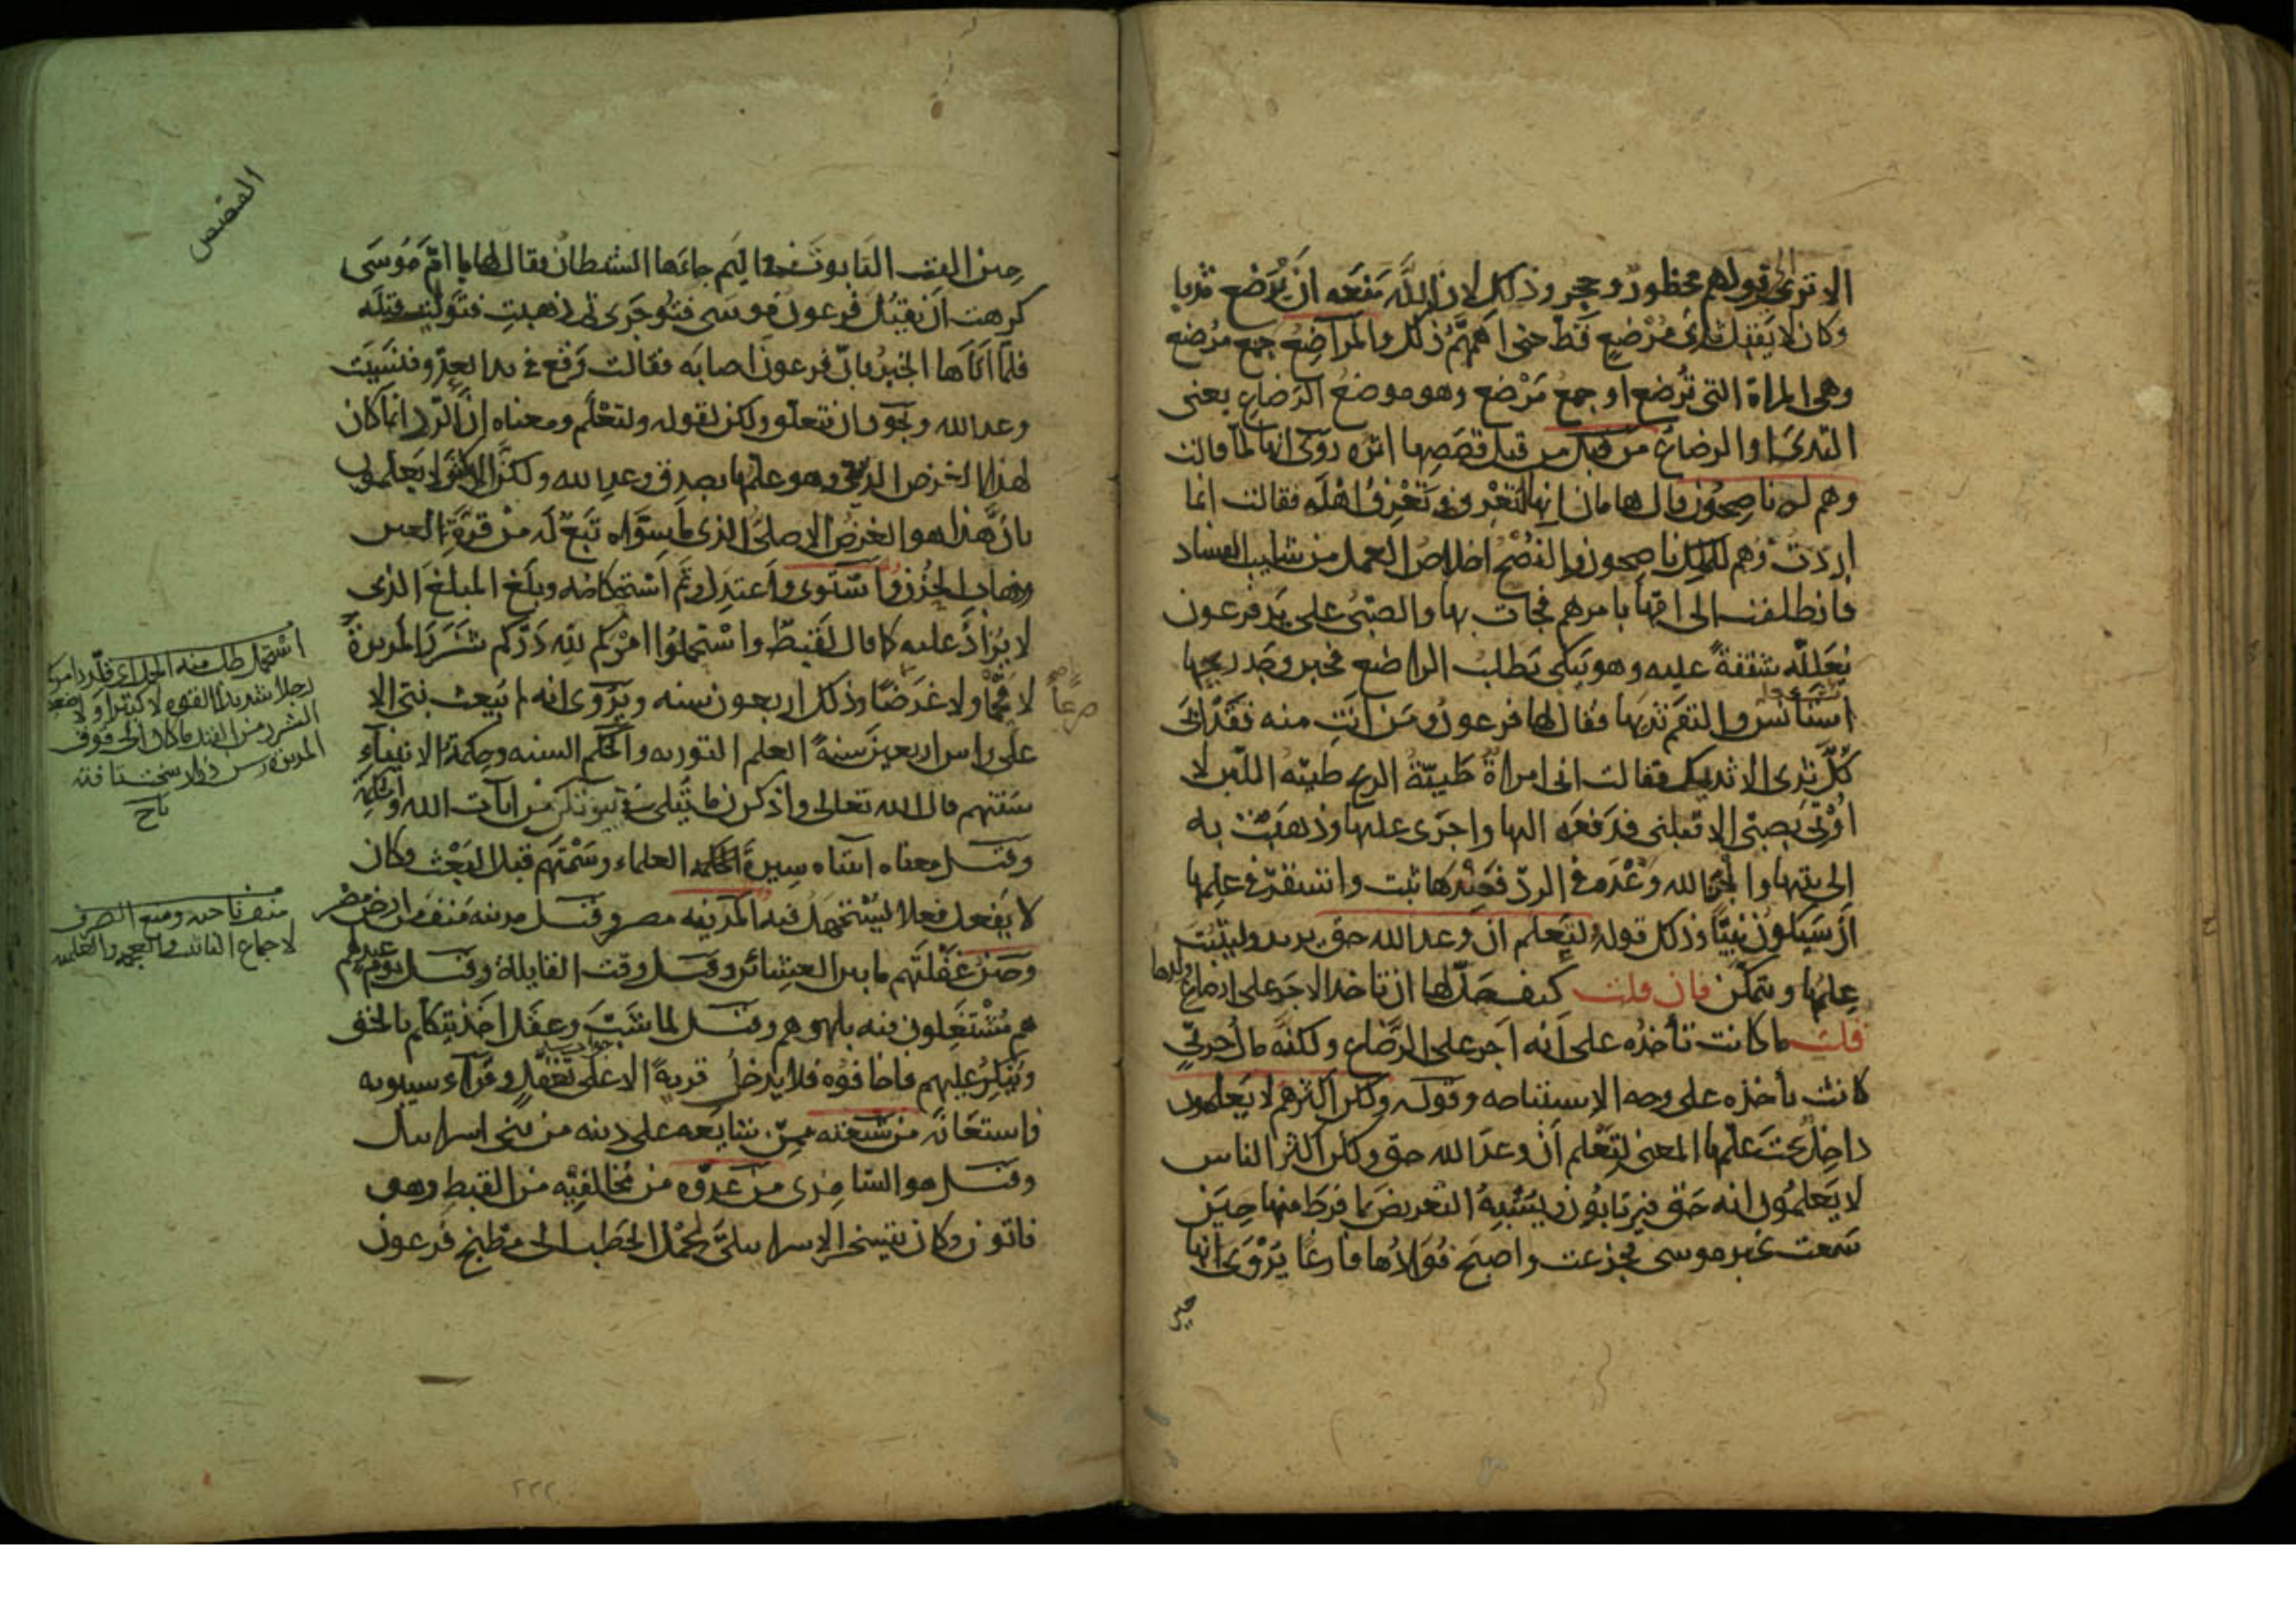 الا ترى الى قولهم محظور وحجر وذلك لان الله منعه ان يرضع ثديا
وكان لا يقبل ثدى مرضع قط حتى اهمهم ذلك والمراضع جمع مرضع
وهى المراة التى ترضع او جمع مرضع وهو موضع الرضاع يعنى
الثدى او الرضاع من قبل من قبل قصصها اثره روى انها لما قالت
وهم له ناصحون قال هامان انها لتعرفه وتعرف اهله فقالت انما
اردت وهم للملك ناصحون والنصح اخلاص العمل من شايب الفساد
فانطلقت الى امها بامرهم فجات بها والصبى على يد فرعون
يعلله شفقة عليه وهو يبكى يطلب الرضاع فحين وجد ريحها
استانس والتقم ثديها فقال لها فرعون ومن انت منه فقد ابى
كل ثدى الا ثديك فقالت انى امراة طيبة الريح طيبة اللبن لا
اوتى بصبى الا قبلنى فدفعه اليها واجرى عليها وذهبت به
الى بيتها وانجز الله وعده فى الرد فعندها ثبت واستقر فى علمها
ان سيكون نبيا وذلك قوله ولتعلم ان وعد الله حق يريد وليثبت
علمها ويتمكن فان قلت كيف حل لها ان تاخذ الاجر على ارضاع ولدها
قلت ما كانت تأخذه على انه اجر على الرضاع ولكنه مال حربى
كانت تأخذه على وجه الاستباحه وقوله ولكن اكثرهم لا يعلمون
داخل تحت علمها المعنى لتعلم ان وعد الله حق ولكن اكثر الناس
لا يعلمون انه حق فيرتابون ويشبه التعريض بما فرط منها حين
سمعت بخبر موسى فجزعت واصبح فؤادها فارغا يروى انها
حين
القصص
حين القت التابوت فى اليم جاءها الشيطان فقال لها يا ام موسى
كرهت ان يقتل فرعون موسى فتوجرى ثم ذهبت فتوليت قتله
فلما اتاها الخبر بان فرعون اصابه فقالت وقع فى يد العدو فنسيت
وعد الله ويجوز ان يتعلق ولكن بقوله ولتعلم ومعناه ان الرد انما كان
لهذا الغرض الدينى وهو علمها بصدق وعد الله ولكن الاكثر لا يعلمون
بان هذا هو الغرض الاصلى الذى ما سواه تبع له من قرة العين
وذهاب الحزن واستوى واعتدل وتم استحكامه وبلغ المبلغ الذى
لا يزاد عليه كما قال لقيط واستحملوا امركم لله دركم شزر المريرة
لا قحما ولا ضرعا وذلك اربعون سنه ويروى انه لم يبعث نبى الا
على راس اربعين سنة العلم التوريه والحكم السنه وحكمة الانبياء
سنتهم قال الله تعالى واذكرن ما يتلى فى بيوتكن من ايات الله والحكمة
وقيل معناه اتيناه سيرة الحكماء العلماء وسمتهم قبل البعث وكان
لا يفعل فعلا يستجهل فيه المدينه مصر وقيل مدينه منف من ارض مصر
وحين غفلتهم ما بين العشائين وقيل وقت القايلة وقيل يوم عيد لهم
هم مشتغلون فيه بلهوهم وقيل لما شب وعقل اخذ يتكلم بالحق
وينكر عليهم فاخافوه فلا يدخل قرية الا على تغفل وقراء سيبويه
فاستعانه من شيعته ممن شايعه على دينه من بنى اسرائيل
وقيل هو السامرى من عدوه من مخالفيه من القبط وهو
فاتون وكان يتسخر الاسرائيلى لحمل الحطب الى مطبخ فرعون
رجلا شديد القوه لا كبيرا ولا ضعيفا
منف ناحيه ومنع الصرف
لاجتماع التانيث والعجمه والعلميه
٢٢٢